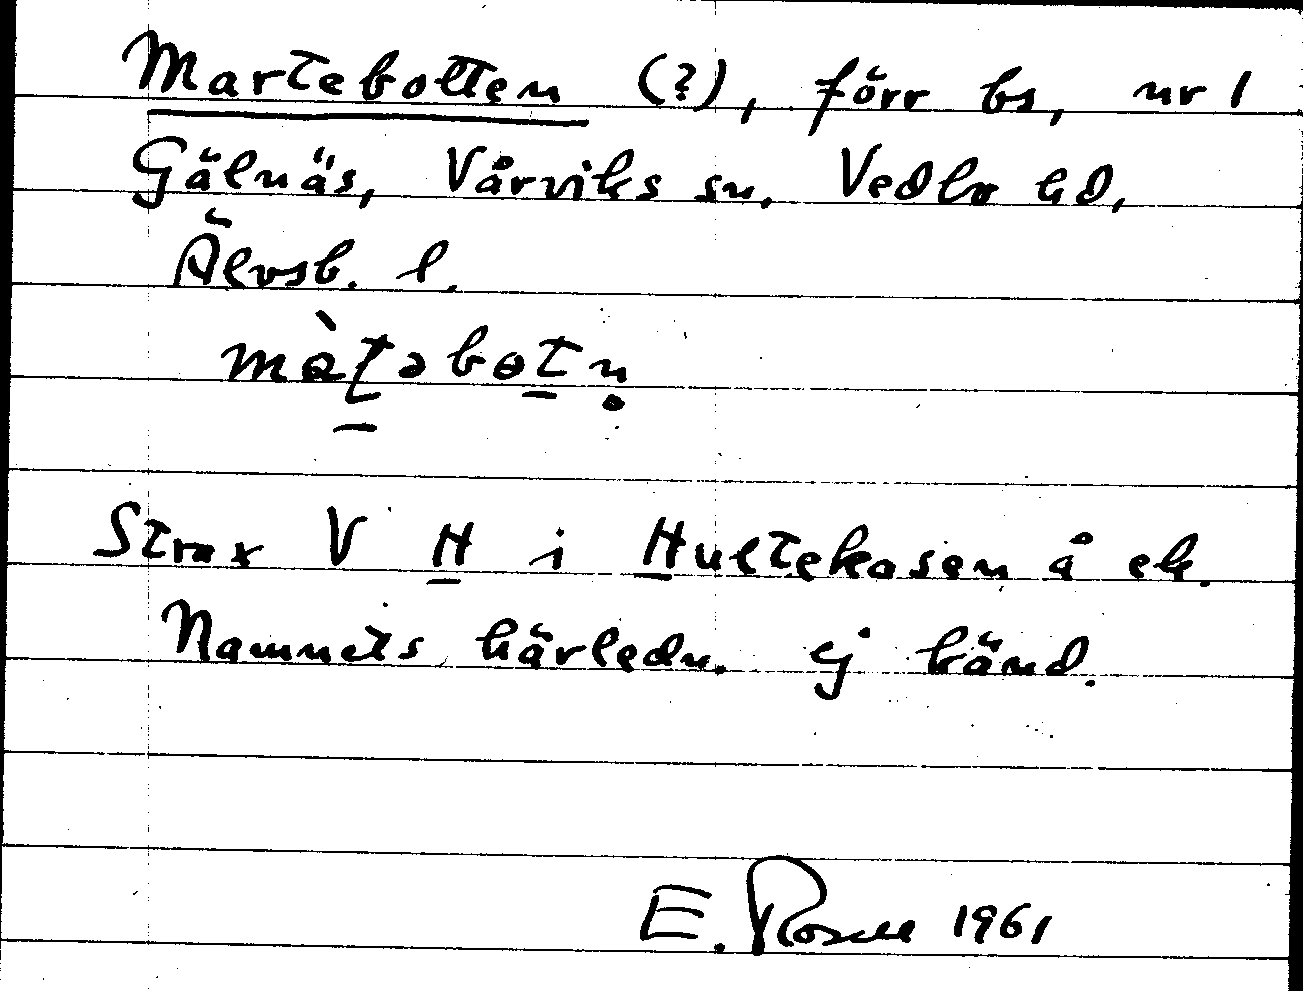 Martebotten (?), förr bs, nr 1
Gälnäs, Vårviks sn, Vedbo hd,
Älvsb. l.
Strax V H i Hultekasen å ek.
Namnets härledn. ej känd.
E. 1961